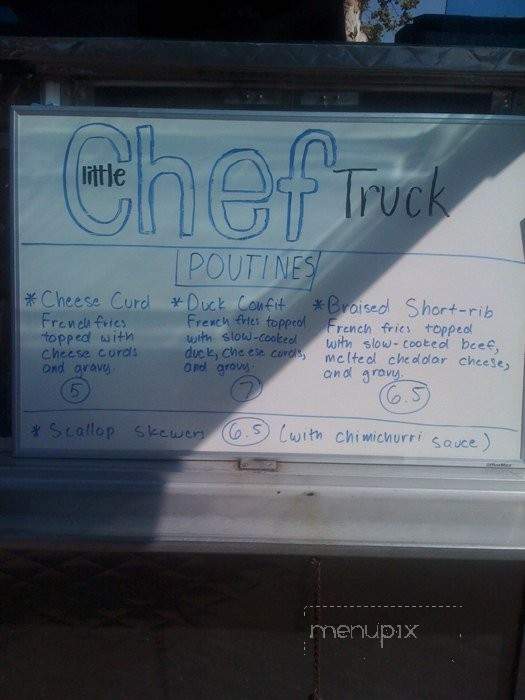 little Chef Truck
POUTINES
* Cheese Curd
French fries
topped with
cheese curds
and gravy.
5
* Duck Confit
French fries topped
with slow-cooked
duck, cheese curds,
and gravy.
7
* Braised Short-rib
French fries topped
with slow-cooked beef,
melted cheddar cheese,
and gravy.
6.5
* Scallop skewers 6.5 (with chimichurri sauce)
OfficeMax
menupix